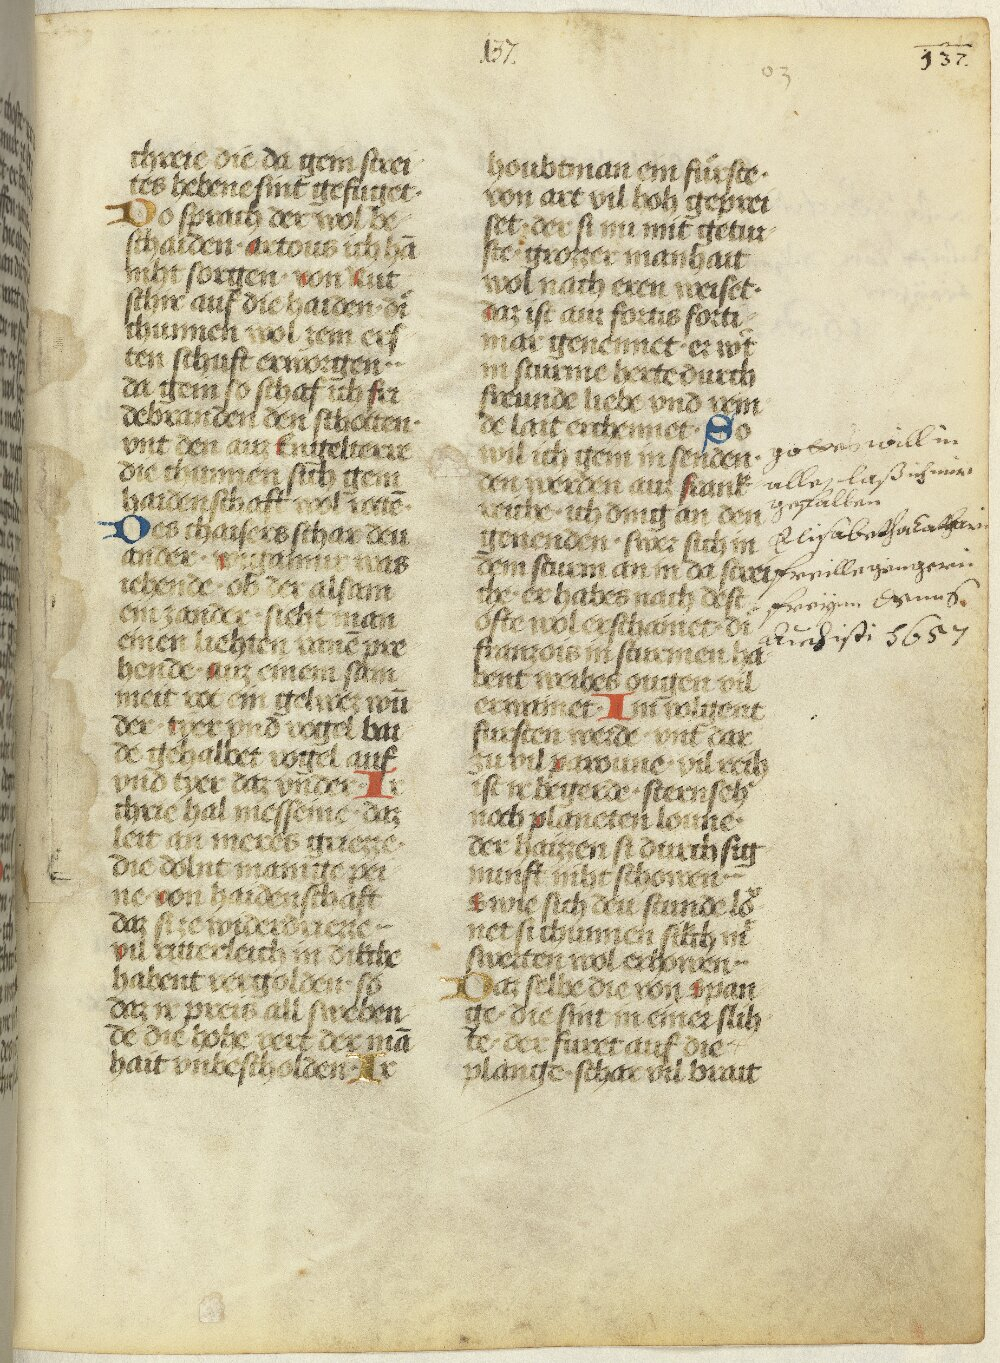 137.
137.
03
chrẏe die da gern strei
tes hebene sint gefuget·
Do sprach der wol be
schaiden· artous ich hā
niht sorgen· von leut
schir auf die haiden· di
chunnen wol zem erſ
ten schuft erworgen··
da gern so schaf ich fri
debranden den schotten·
vnt den auz Engelterre
die chunnen sich gern
haidenschaft wol retē·
Des chaisers schar deu
ander· wigamur was
iehende· ob der alsam
ein zander· sieht man
einen liehten vanē pre
hende· auz einem sam
meit rot ein gel werz wū
der· tyer vnd vogel bai
de gehalbet vogel auf
vnd tyer daz vnder· Ir
chrie hal messeine· daz
leit an meres griezze·
die dolnt manige pei
ne· von haidenschaft
daz si ze widerdriezze··
vil ritterleich in dikche
habent vergolden· so
daz ir preis all sweben
de die hohe vert der mā
hait vnbescholden· Ir
houbtman ein furste·
von art vil hoh geprei
set· der si nu mit getur
ste· grozzer manhait
wol nach eren weiset·
daz ist auz fortis forti
mar genennet· er wt
in sturme herte durch
freunde liebe vnd vein
de lait erchennet· So
wil ich gern in senden·
den werden auz frank
reiche· ich ding an den
genenden· swer sich in
dem sturm an in da strei
che· er habes nach dest
ofte wol erschainet· di
franzois in sturmen ha
bent weibes ougen vil
erwainet· Im volgent
fursten werde· vnt dar
zu vil paroune· vil reih
ist ir begerde· sternseh
noch planeten loune·
der haizzen si durch sig
nunft niht schowen··
swie sich deu stunde lo
net si chunnen sikch mī
swerten wol erhowen··
Daz selbe die von span
ge· die sint in einer slih
te· der furet auf die
plange· schar vil brait
gottes will in
allen laß ich mir
gefallen
Elisabetha Catharin
freyin
5657